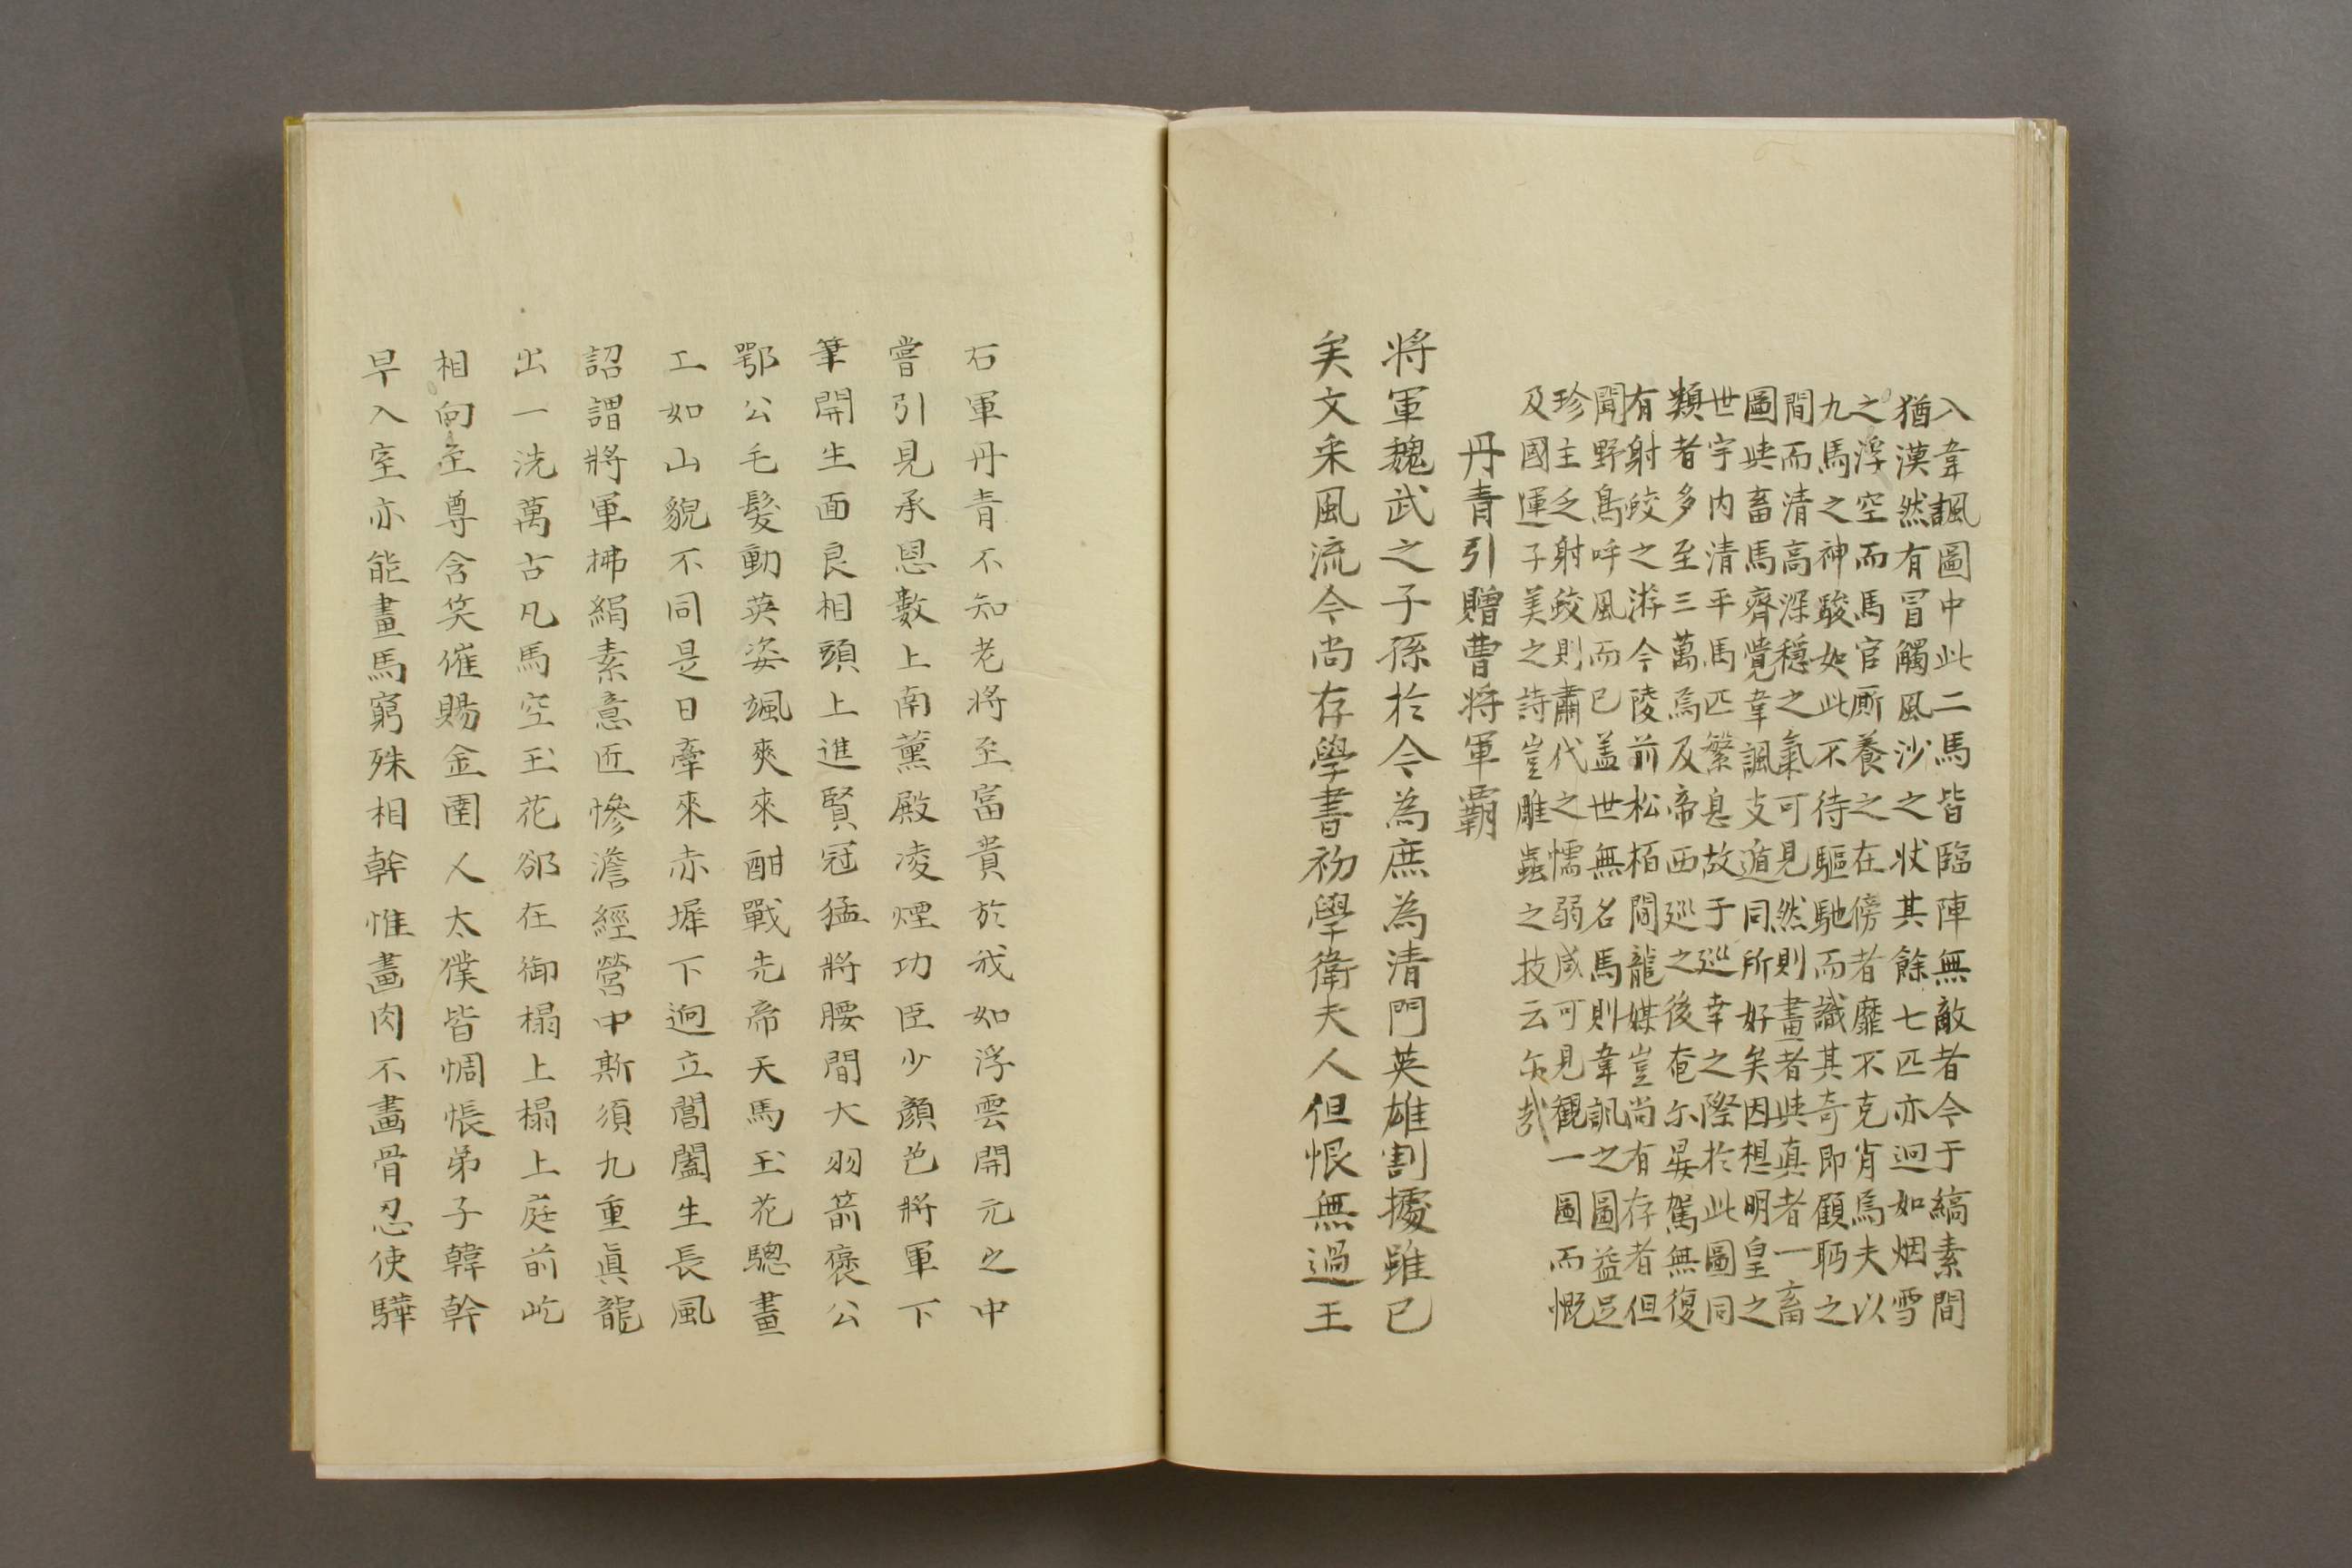 入韋諷圖中此二馬皆臨陣無敵者今于縞素間
猶漠然有冒觸風沙之状其餘七匹亦迥如烟雪
之浮空而馬官厮養之在傍者靡不克肖焉夫以
九馬之神駿如此不待驅馳而識其奇即顧眄之
間而清高深穩之氣可見然則畫者與真者一畜
圖與畜馬齊覺韋諷支遁同所好矣因想明皇之
世宇内清平馬匹繁息故于巡幸之際於此圖同
類者多至三萬焉及帝西巡之後奄尓晏駕無復
有射蛟之游今陵前松栢間龍媒豈尚有存者但
聞野鳥呼風而已盖世無名馬則韋諷之圖益足
珍主乏射蛟則肅代之懦弱咸可見觀一圖而慨
及國運子美之詩豈雕蟲之技云尓哉
丹青引贈曹将軍霸
将軍魏武之子孫於今為庶為清門英雄割據雖已
矣文采風流今尚存學書初學衛夫人但恨無過王
右軍丹青不知老將至富貴於我如浮雲開元之中
嘗引見承恩數上南薰殿凌煙功臣少顏色將軍下
筆開生面良相頭上進賢冠猛將腰間大羽箭褒公
鄂公毛髮動英姿颯爽來酣戰先帝天馬玉花驄畫
工如山貌不同是日牽來赤墀下迥立閶闔生長風
詔謂將軍拂絹素意匠慘澹經營中斯須九重真龍
出一洗萬古凡馬空玉花郤在御榻上榻上庭前屹
相向至尊含笑催賜金圉人太僕皆惆悵弟子韓幹
早入室亦能畫馬窮殊相幹惟畫肉不畫骨忍使驊